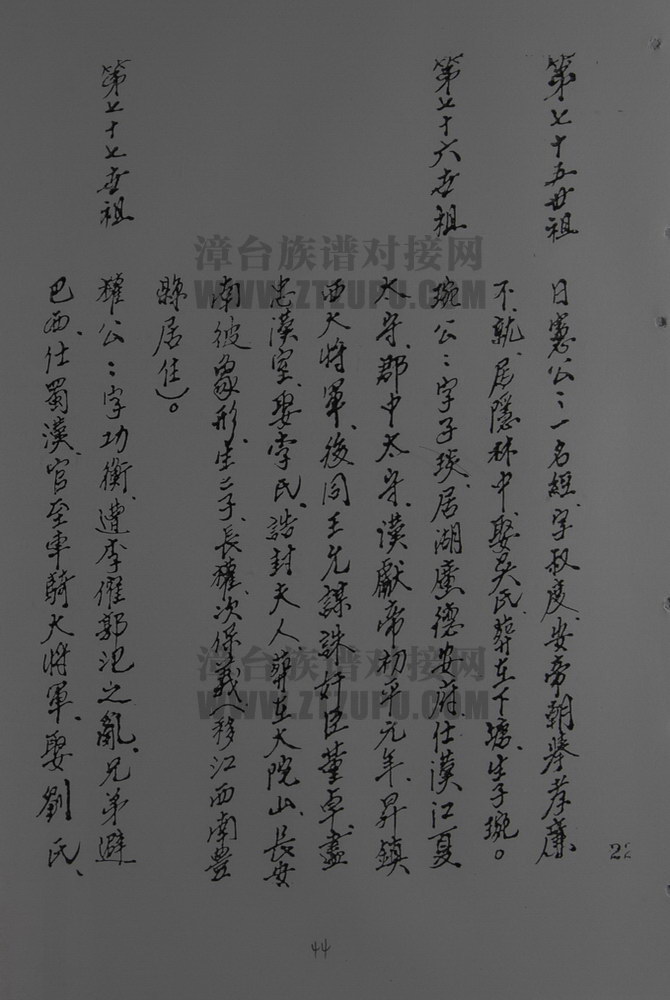 第七十五世祖
日憲公：一名經、字叔度、安帝朝舉孝廉
不就、居隱林中、娶吳氏、葬在下壚、生子琬。
第七十六世祖
琬公：字子琰、居湖廣德安府、仕漢江夏
太守、郡中太守、漢獻帝初平元年、昇鎮
西大將軍、後同王允謀誅奸臣董卓、盡
忠漢室、娶李氏、誥封夫人、葬在大院山、長安
南彼象形、生二子、長權、次保義（移江西南豐
縣居住）。
第七十七世祖
權公：字功衡、遭李傕郭汜之亂、兄弟避
巴西、仕蜀漢、官至車騎大將軍、娶劉氏、
22
44
漳台族谱对接网
WWW.ZTZUPU.COM
漳台族谱对接网
WWW.ZTZUPU.COM